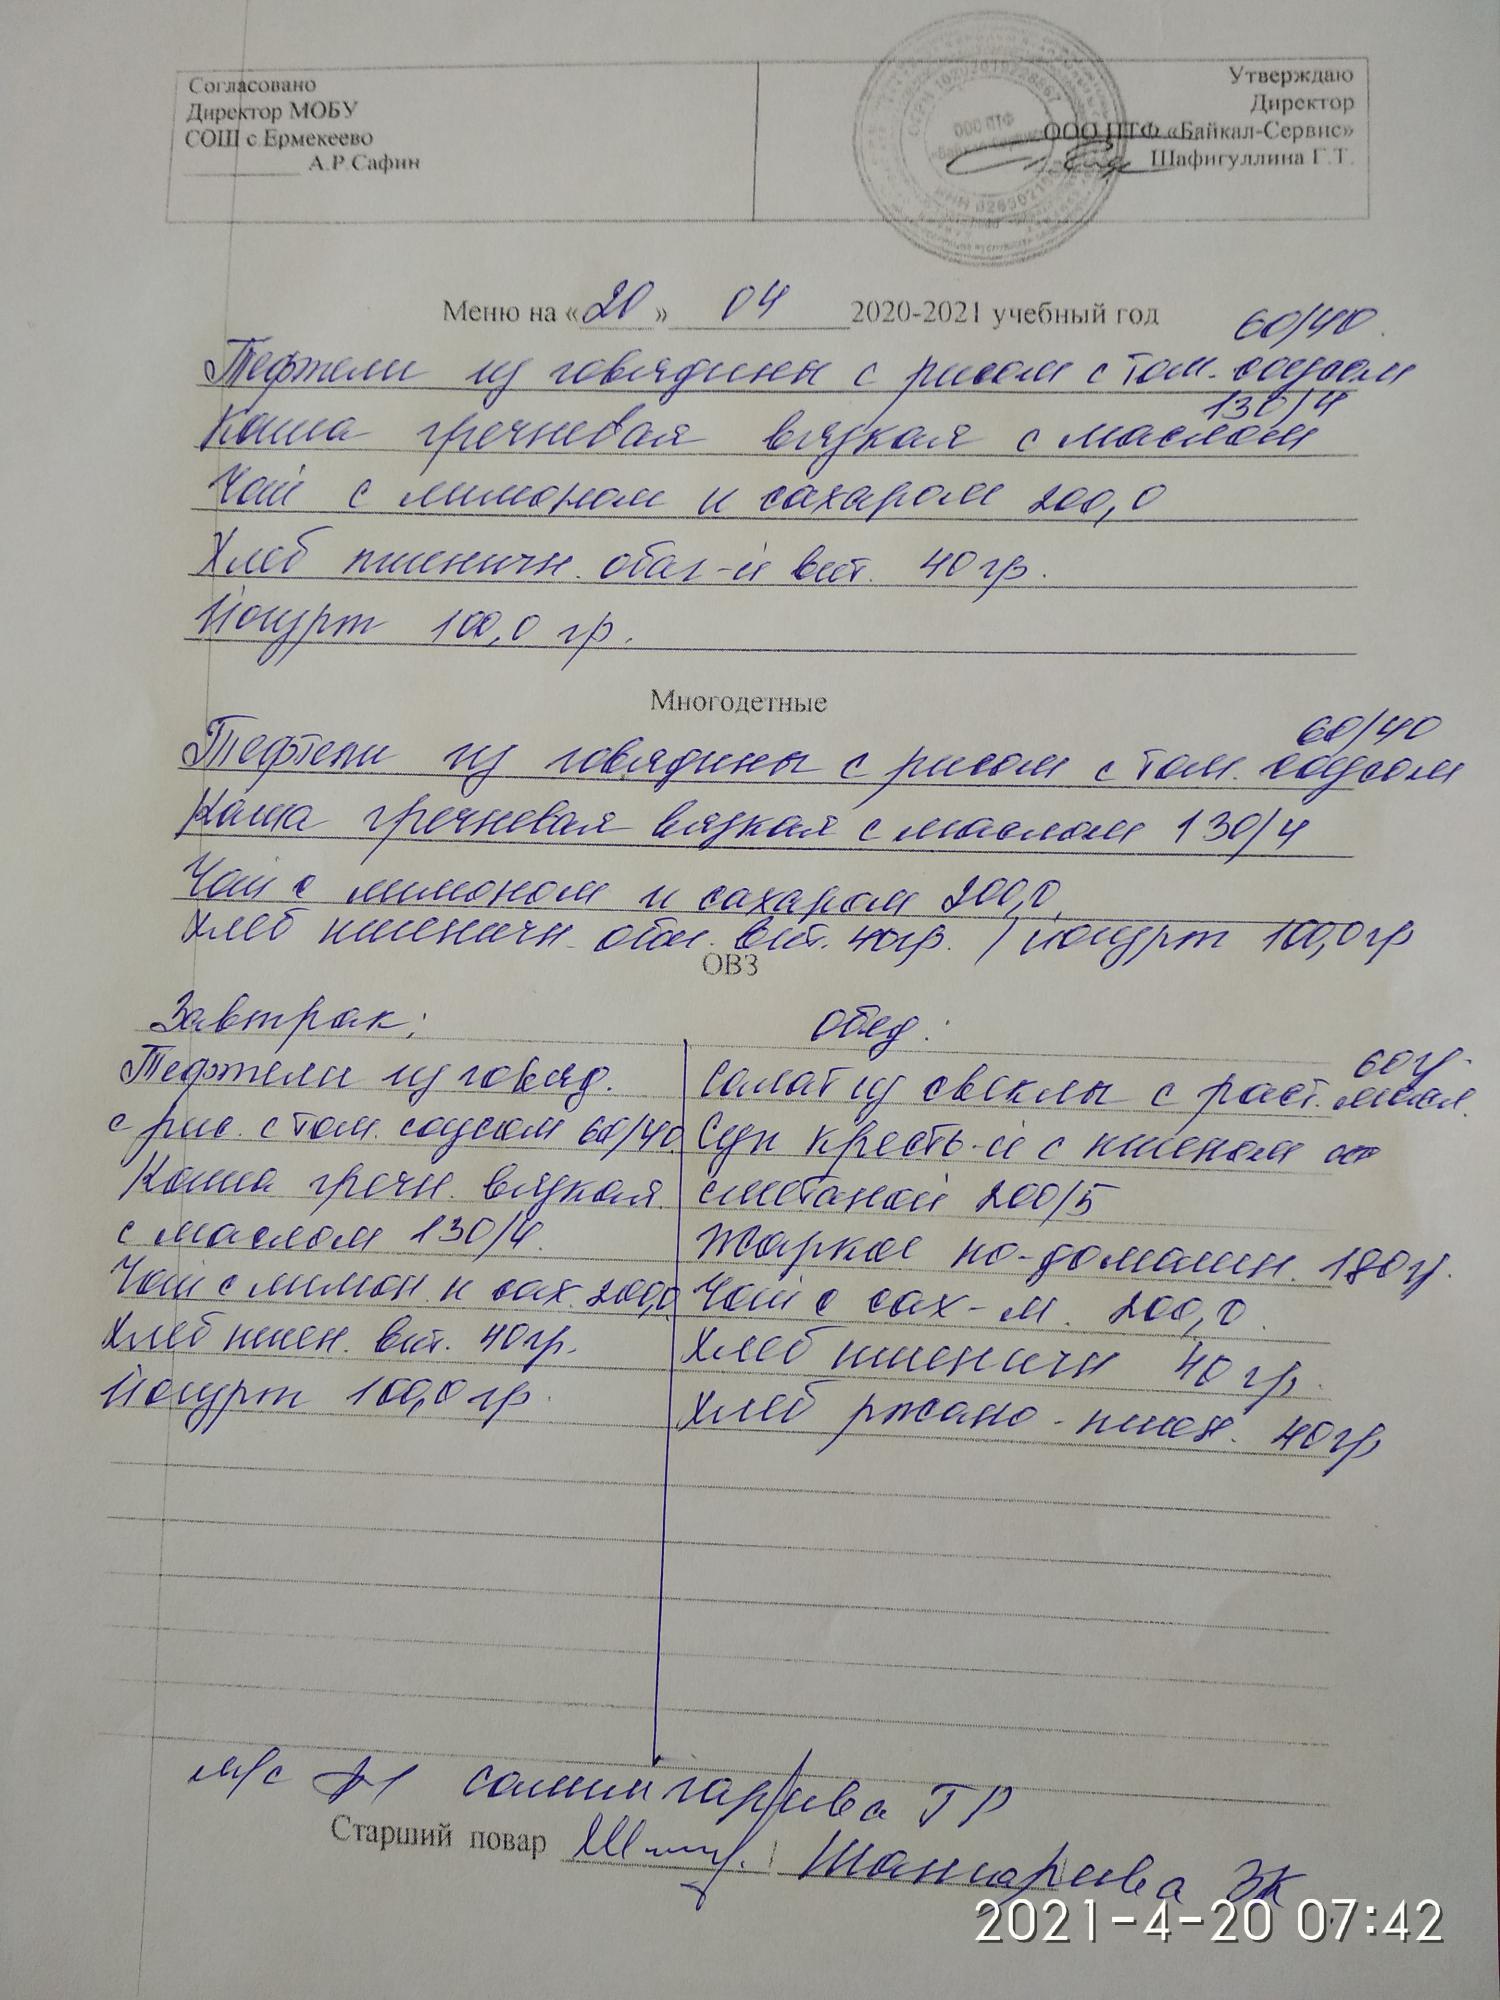 Согласовано
Директор МОБУ
СОШ с Ермекеево
А.Р.Сафин
Утверждаю
Директор
ООО ПТФ «Байкал-Сервис»
Шафигуллина Г.Т.
ООО ПТФ
Меню на «20» 04 2020-2021 учебный год
60/40
Тефтели из говядины с рисом с том. соусом
130/4
Каша гречневая вязкая с маслом
Чай с лимоном и сахаром 200,0
Хлеб пшеничн. обог-й вит. 40 гр.
Йогурт 100,0 гр.
Многодетные
60/40
Тефтели из говядины с рисом с том. соусом
Каша гречневая вязкая с маслом 130/4
Чай с лимоном и сахаром 200,0
Хлеб пшеничн. обог. вит. 40гр. / йогурт 100,0 гр
ОВЗ
Завтрак:
Тефтели из говяд.
с рис. с том. соусом 60/40
Каша гречн. вязкая
с маслом 130/4
Чай с лимон. и сах. 200,0
Хлеб пшен. вит. 40гр.
Йогурт 100,0 гр
Обед:
60гр
Салат из свеклы с раст. масл.
Суп кресть-й с пшеном со
сметаной 200/5
Жаркое по-домашн. 180гр.
Чай с сах-м. 200,0
Хлеб пшеничн 40 гр.
Хлеб ржано-пшен. 40гр
м/с Салимгареева ГР
Старший повар Шангареева ЗК
2021-4-20 07:42